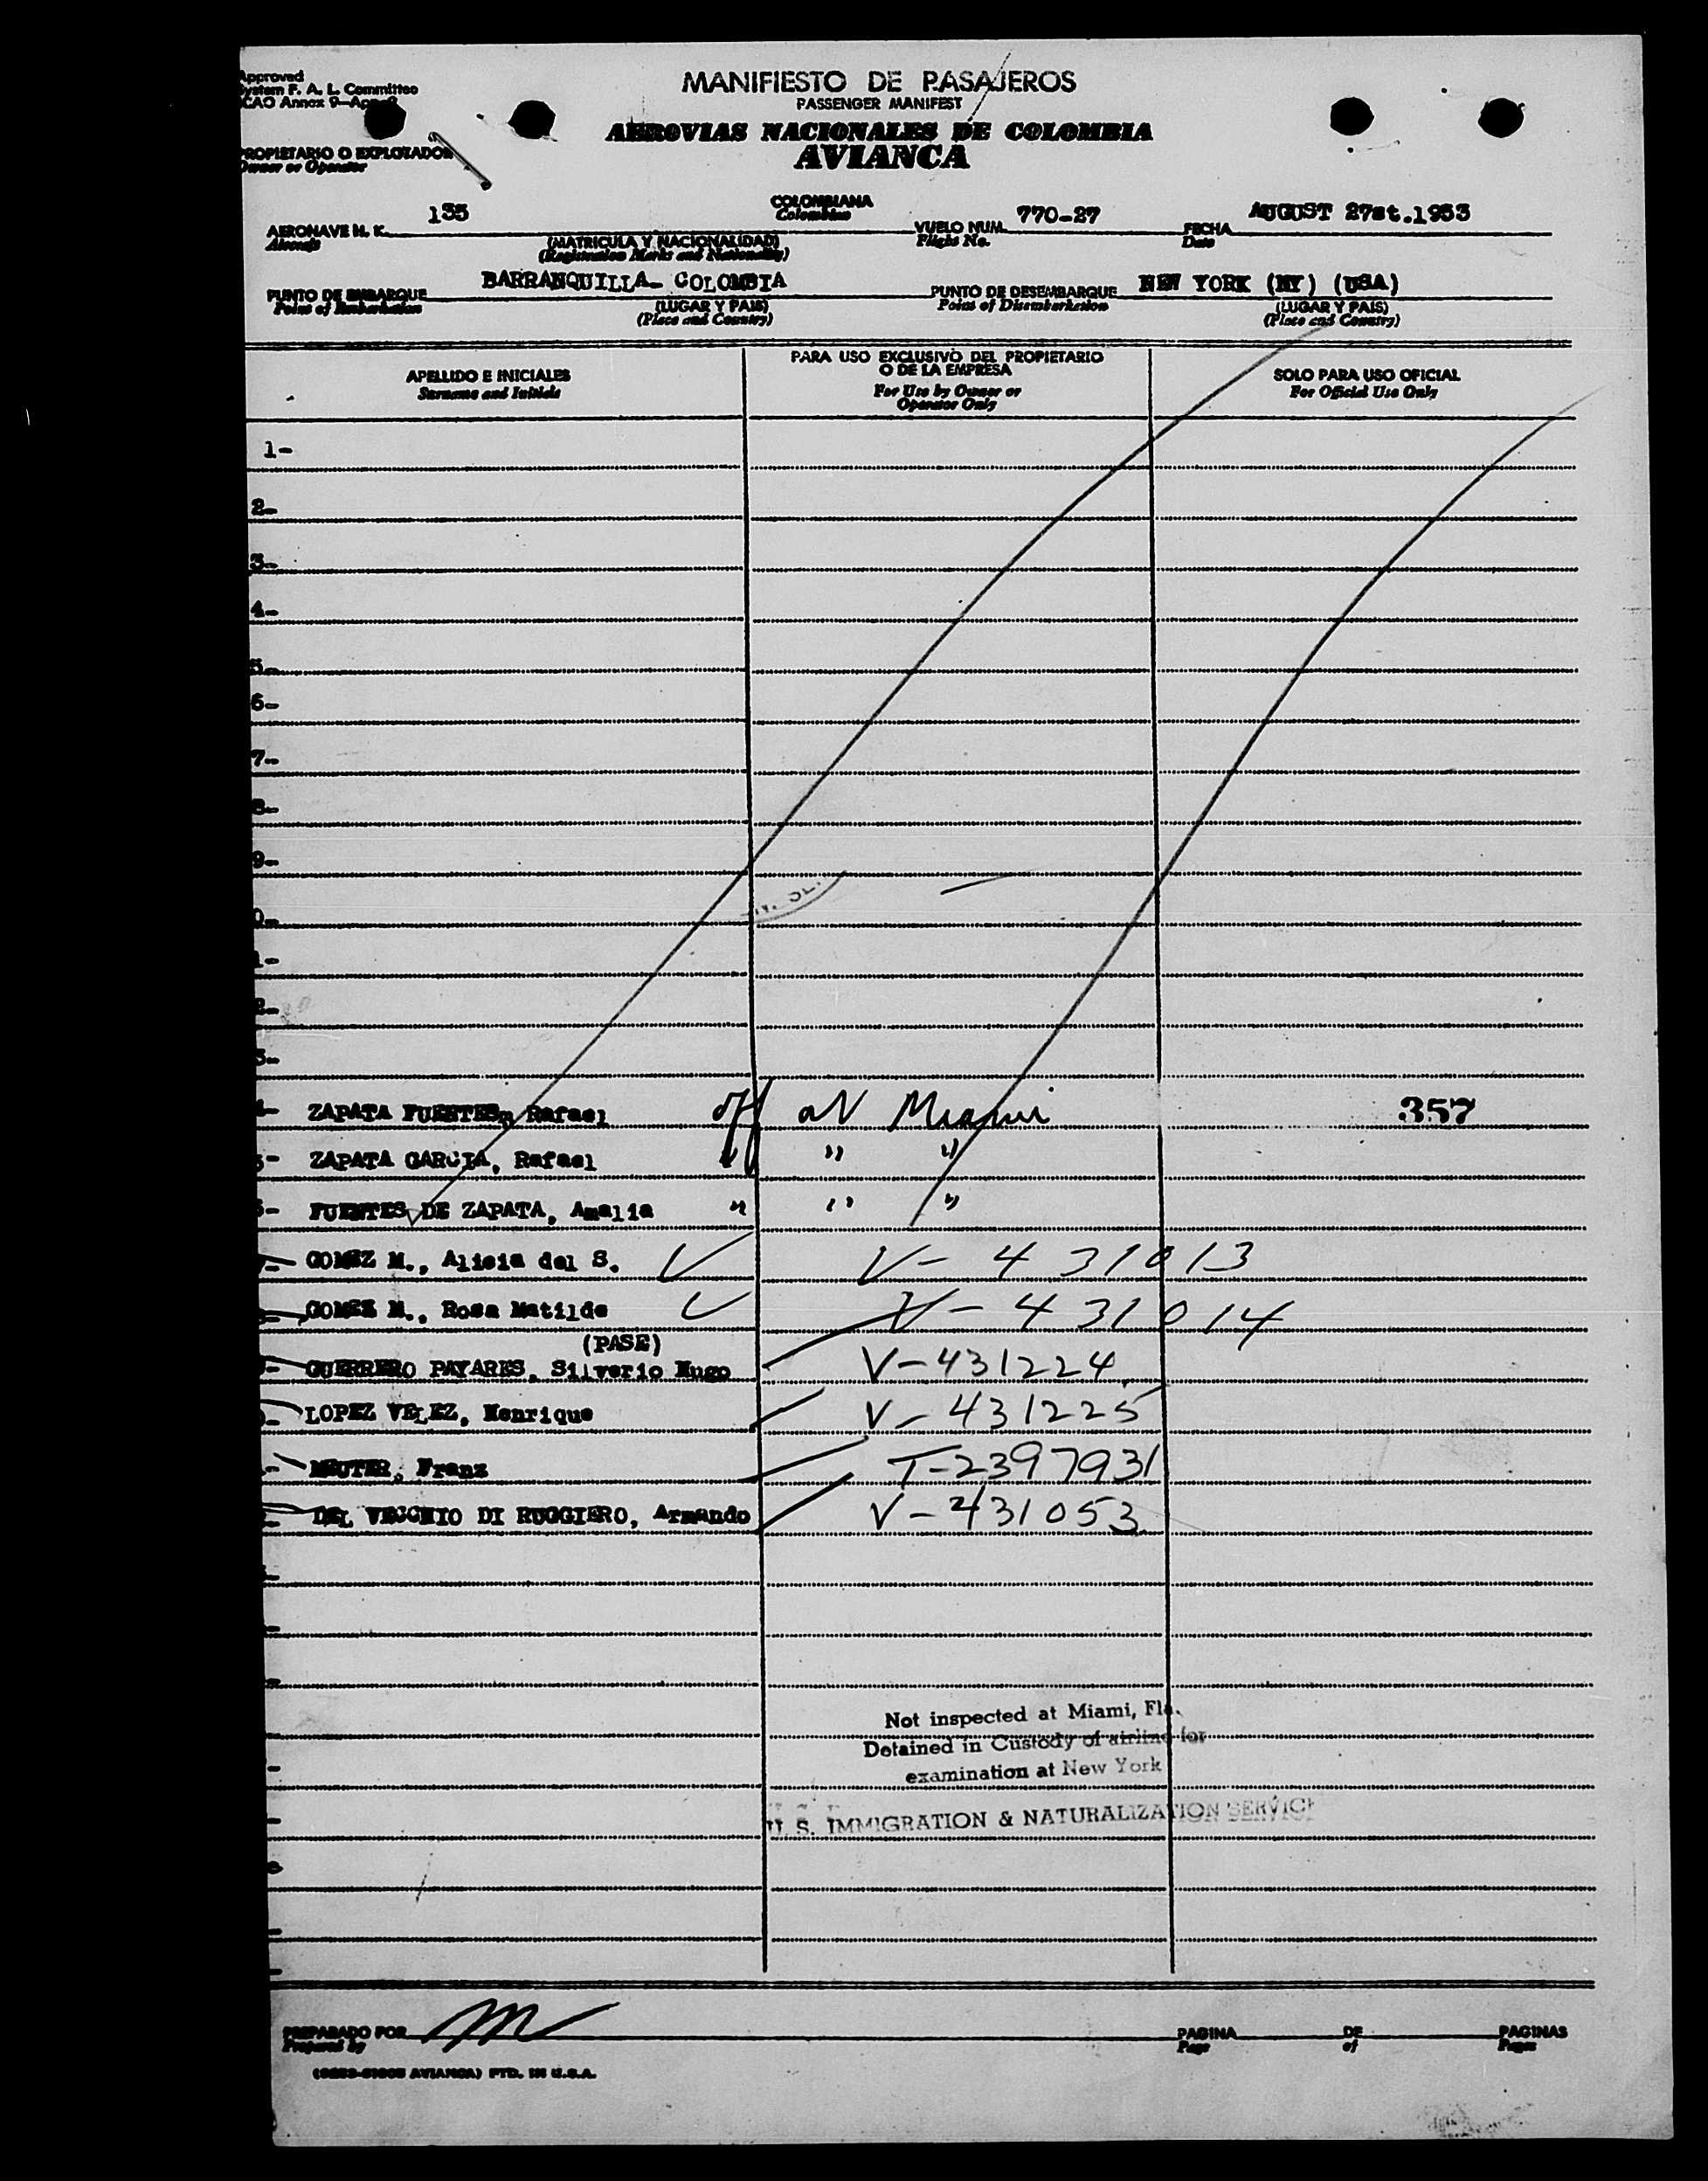 Approved
System F. A. L. Committee
ICAO Annex 9—App.
MANIFIESTO DE PASAJEROS
PASSENGER MANIFEST
AEROVIAS NACIONALES DE COLOMBIA
AVIANCA
PROPIETARIO O EXPLOTADOR
Owner or Operator
AERONAVE H. K. 135 COLOMBIANA VUELO NUM. 770-27 FECHA AUGUST 27st.1953
Aircraft Colombian Flight No. Date
(MATRICULA Y NACIONALIDAD)
(Registration Marks and Nationality)
PUNTO DE EMBARQUE BARRANQUILLA- COLOMBIA PUNTO DE DESEMBARQUE NEW YORK (NY) (USA)
Point of Embarkation (LUGAR Y PAIS) Point of Disembarkation (LUGAR Y PAIS)
(Place and Country) (Place and Country)
APELLIDO E INICIALES PARA USO EXCLUSIVO DEL PROPIETARIO O DE LA EMPRESA SOLO PARA USO OFICIAL
Surname and Initials For Use by Owner or Operator Only For Official Use Only
1-
2-
3-
4-
5-
6-
7-
8-
9-
0-
1-
2-
3-
4- ZAPATA FUENTES, Rafael off at Miami 357
5- ZAPATA GARCIA, Rafael " " "
6- FUENTES DE ZAPATA, Amalia " " "
GOMEZ M., Alicia del S. V- 431013
GOMEZ M., Rosa Matilde V- 431014
(PASE)
GUERRERO PAYARES, Silverio Hugo V-431224
LOPEZ VELEZ, Henrique V- 431225
MEUTER, Franz T-2397931
DEL VECCHIO DI RUGGIERO, Armando V- 431053
Not inspected at Miami, Fla.
Detained in Custody of airline for
examination at New York
U. S. IMMIGRATION & NATURALIZATION SERVICE
PREPARADO POR PAGINA DE PAGINAS
Prepared by Page of Pages
AVIANCA) PTD. IN U.S.A.